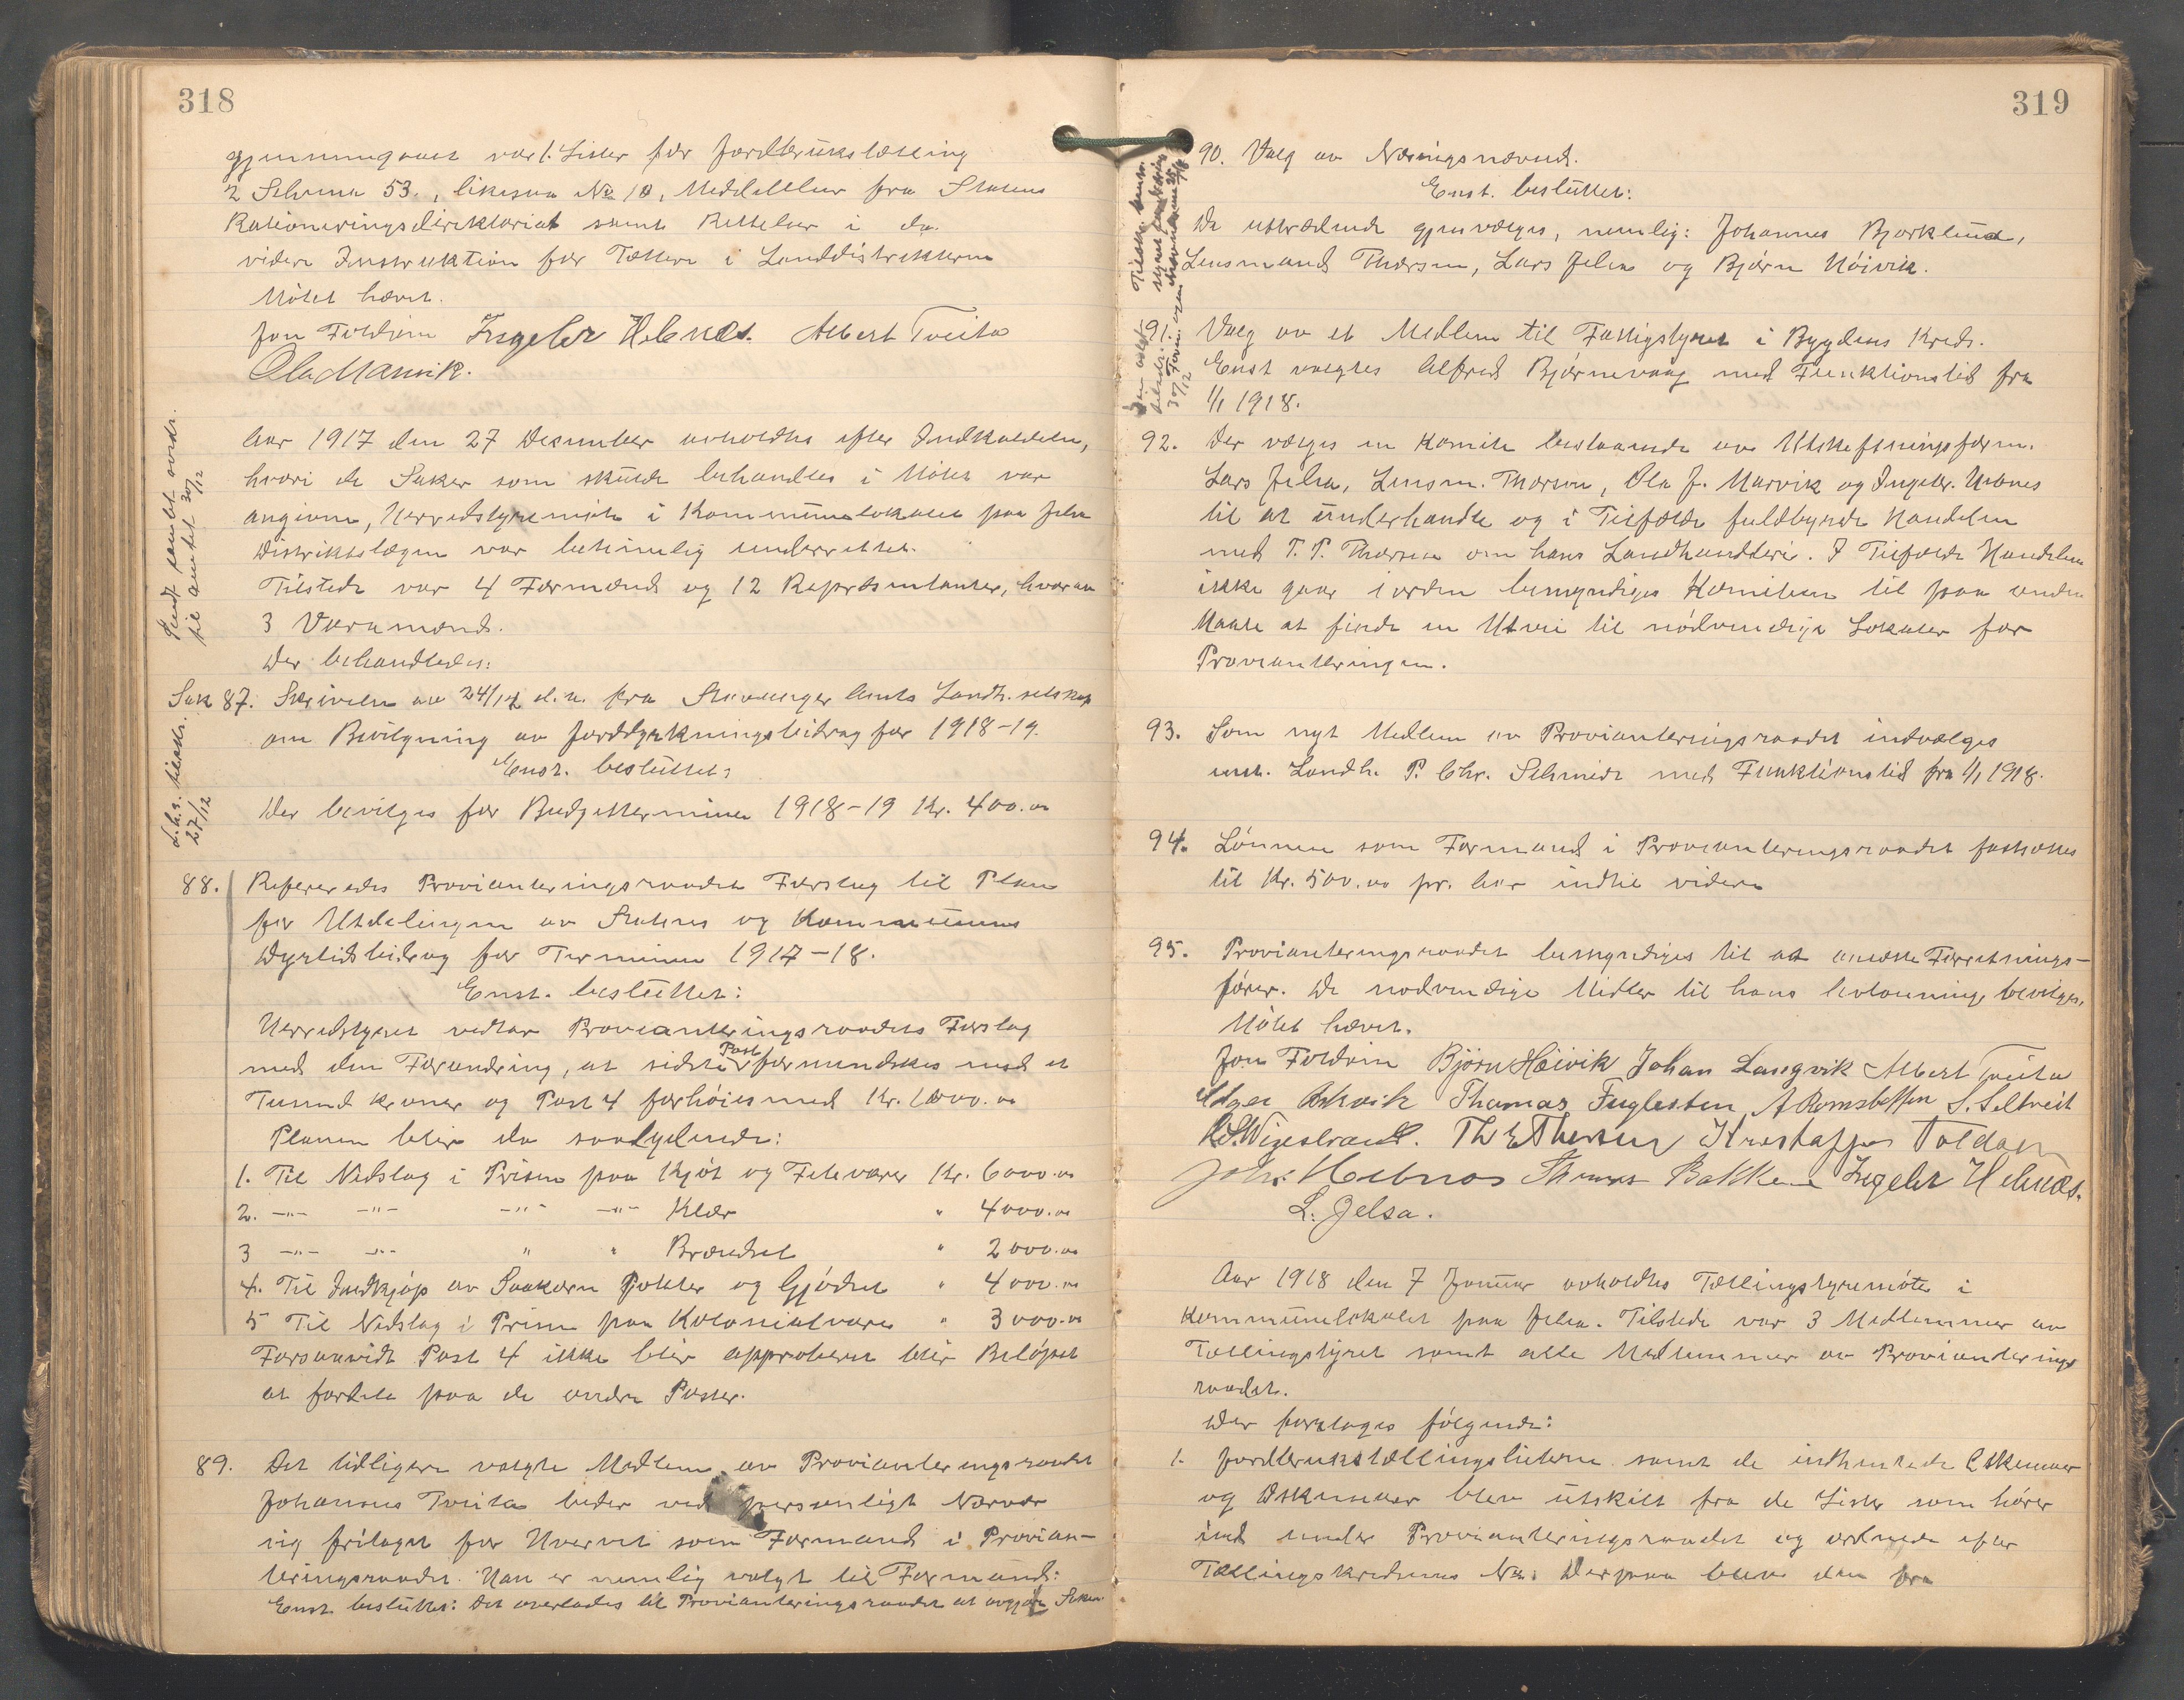 318
gjennemgaaet var 1. Lister for Jordbrukstælling
2 Schema 53., likesaa No 10, Meddelelser fra Statens
Rationeringsdirektoriat samt Rettelser i do
videre Instruktion for Tællere i Landdistrikterne
Mötet hævet.
Jon Foldöen Ingebr Hebnes. Albert Tveita
Ola Marvik.
Sendt samlet avskr.
til amtet 30/12
Aar 1917 den 27 Desember avholdtes efter Indkaldelse,
hvori de Saker som skulde behandles i Mötet var
angivne, Herredstyremöte i Kommunelokalet paa Jelsa
Distriktslægen var betimelig underrettet.
Tilstede var 4 Formænd og 12 Repræsentanter, hvorav
3 Varamænd.
Der behandledes:
Sak 87. Skrivelse av 24/12 d.a. fra Stavanger Amts Landh. selskap
om Bevilgning av Jorddyrkningsbidrag for 1918-19.
Enst. besluttet:
L.h.s. tilskr.
27/12
Der bevilges for Budgetterminen 1918-19 Kr. 400.00
88. Refereredes Provianteringsraadets Forslag til Plan
for Utdelingen av Statens og Kommunens
Dyrtidsbidrag for Terminen 1917-18.
Enst. besluttet:
Herredstyret vedtar Provianteringsraadets Forslag
med den Forandring, at sidste Post formindskes med et
Tusend kroner og Post 4 forhöies med Kr. 1000.00
Planen blir da saalydende:
1. Til Nedslag i Prisen paa Kjöt og Fetevarer Kr. 6000.00
2. -"- -"- -"- -"- Klær " 4000.00
3 -"- -"- " " Brændsel " 2000.00
4. Til Indkjöp av Saakorn Poteter og Gjödsel " 4000.00
5 Til Nedslag i Prisen paa Kolonialvarer " 3000.00
Forsaavidt Post 4 ikke blir approberet blir Belöpet
at fordele paa de andre Poster.
89. Det tidligere valgte Medlem av Provianteringsraadet
Johannes Tveita beder ved personligt Nærvær
sig fritaget for Hvervet som Formand i Provian-
teringsraadet. Han er nemlig valgt til Formand:
Enst. besluttet: Det overlades til Provianteringsraadet at avgjöre Saken
319
90. Valg av Næringsnævnd.
Enst. besluttet:
De uttrædende gjenvælges, nemlig: Johannes Bjorklund,
Lensmand Thorsen, Lars Jelsa og Björn Höivik.
91. Valg av et Medlem til Fattigstyret i Bygdens Kreds.
Enst valgtes Alfred Björnevaag med Funktionstid fra
1/1 1918.
92. Der vælges en Komite bestaaende av Utskiftningsform.
Lars Jelsa, Lensm. Thorsen, Ola J. Marvik og Ingebr. Hebnes
til at underhandle og i Tilfælde fuldbyrde Handelen
med T. P. Thorsen om hans Landhandleri. I Tilfælde Handelen
ikke gaar iorden bemyndiges Komiteen til paa anden
Maate at finde en Utvei til nödvendige Lokaler for
Provianteringen.
93. Som nyt Medlem av Provianteringsraadet indvælges
enst. Landh. P. Chr. Schmidt med Funktionstid fra 1/1 1918.
94. Lönnen som Formand i Provianteringsraadet fastsættes
til Kr. 500.00 pr. Aar indtil videre
95. Provianteringsraadet bemyndiges til at ansætte Forretnings-
förer. De nödvendige Midler til hans Avlönning bevilges.
Mötet hævet.
Jon Foldöen Björn Höivik Johan Langvik Albert Tveita
Thomas Fuglesten A Romsbotten S. Seltveit
Kristoffer Foldöen
Joh. Hebnos Thomas Bakken Ingebr Hebnes.
L. Jelsa.
Aar 1918 den 7 Januar avholdtes Tællingstyremöte i
Kommunelokalet paa Jelsa. Tilstede var 3 Medlemmer av
Tællingstyret samt alle Medlemmer av Provianterings
raadet.
Der foretoges fölgende:
1. Jordbrukstællingslisterne samt de indhentede C skemaer
og D skemaer blev utskilt fra de Lister som hörer
ind under Provianteringsraadet og ordnede efter
Tællingskredsenes No. Derpaa blev den fra